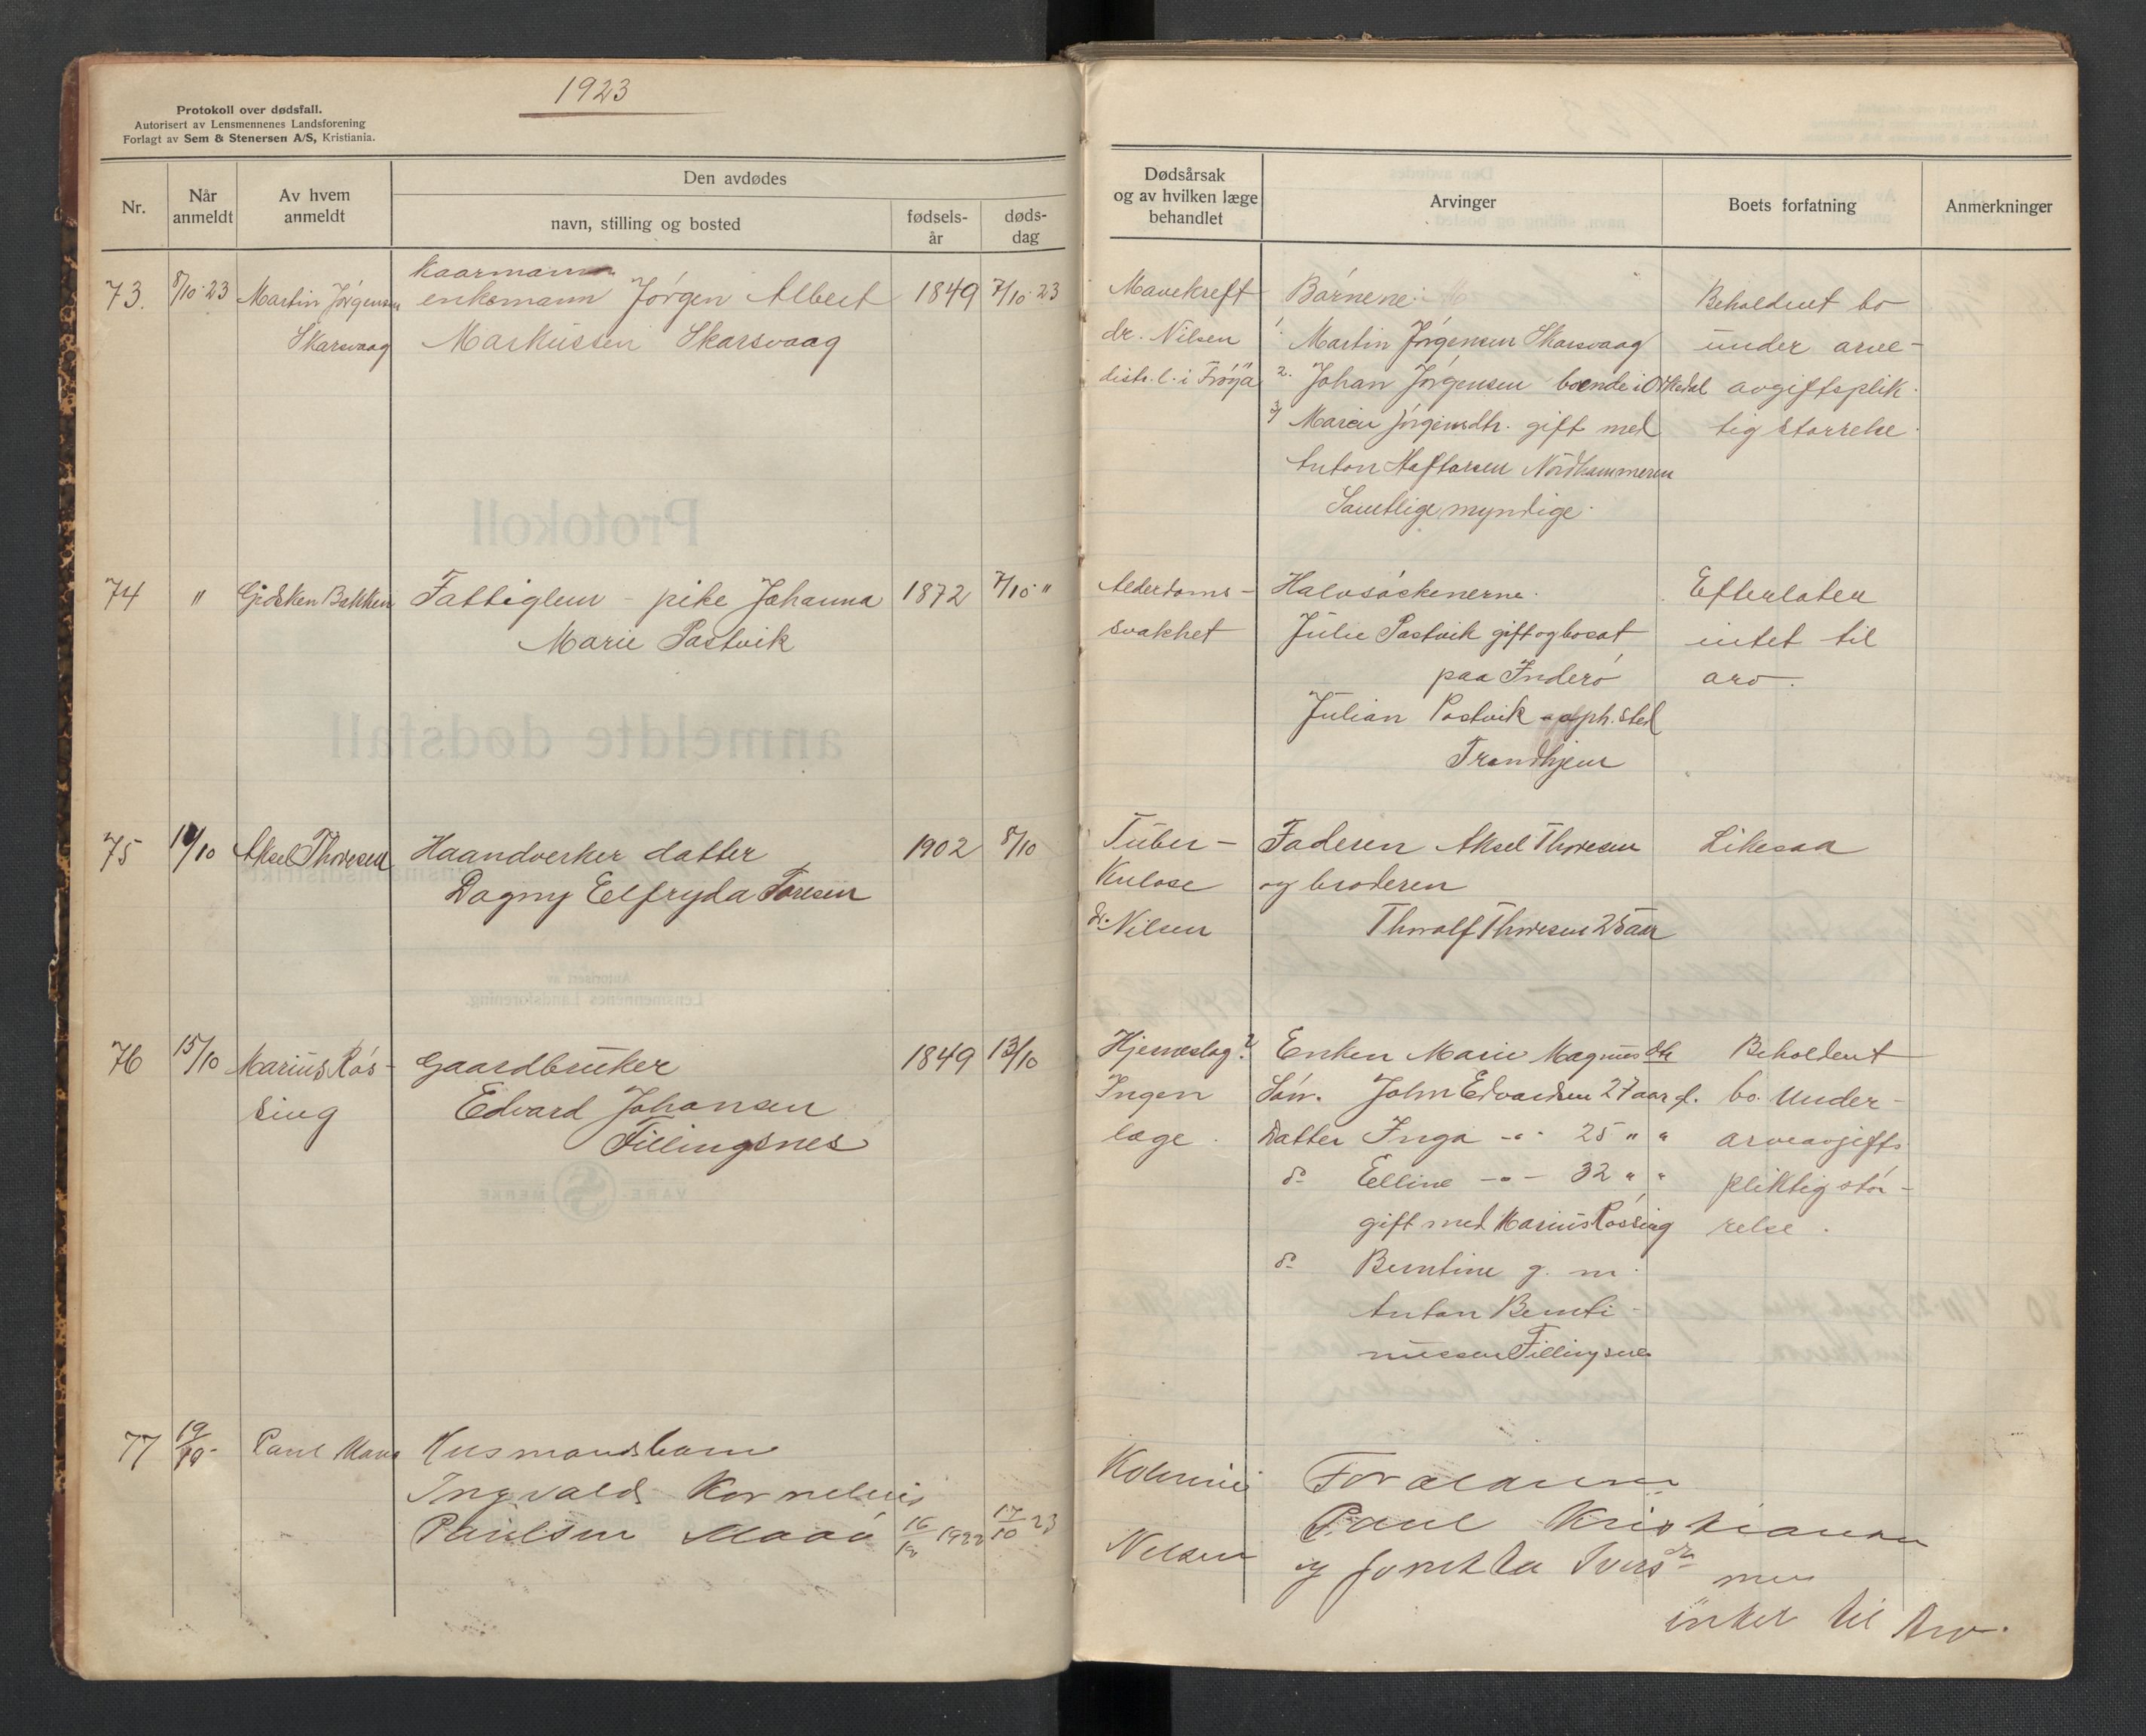 1923
Protokoll over dødsfall.
Autorisert av Lensmennenes Landsforening
Forlagt av Sem & Stenersen A/S, Kristiania.
Nr.
Når anmeldt
Av hvem anmeldt
Den avdødes
navn, stilling og bosted
fødsels-år
døds-dag
Dødsårsak
og av hvilken læge
behandlet
Arvinger
Boets forfatning
Anmerkninger
73. 8/10 23 Martin Jørgensen
Skarsvaag
Kaarmann
enkemann Jørgen Albert 1849 7/10 23
Markussen Skarsvaag
Mavekreft
dr. Nilsen
distr.l. i Frøya
Børnene:
1. Martin Jørgensen Skarsvaag
2. Johan Jørgensen boende i Orkedal
3) Marie Jørgensdtr. gift med
Anton Haftorsen Nordhammeren
Samtlige myndige.
Beholdent bo
under arve-
avgiftsplik
tig størrelse.
74 " Gidsken Bakken Fattiglem - pike Johanna 1872 7/10 "
Marie Pastvik
Alderdoms-
svakhet
Halvsøskenerne.
Julie Pastvik gift og bosat
paa Inderø
Julian Pastvik opph.sted
Trondhjem
Efterlater
intet til
arv.
75 10/10 Aksel Thoresen Haandverker datter 1902 8/10
Dagny Elfryda Toresen
Tuber-
kulose
dr. Nilsen
Faderen Aksel Thoresen
og broderen
Thoralf Thoresen 25 aar
Likesaa
76 15/10 Marius Røs-
sing
Gaardbruker 1849 13/10
Edvard Johansen
Fillingsnes
Hjerneslag?
Ingen
læge.
Enken Marie Magnusdtr
Søn. John Edvardsen 27 aar g.
Datter Inga -"- 25 " "
do Elline -"- 32 " "
gift med Marius Røssing
do Berntine g. m.
Anton Bernti-
nussen Fillingsnes
Beholdent
bo. Under-
arveavgifts
pliktig stør-
relse.
77 19/10 Paul Maaø Husmandsbarn
Ingvald Kornelius
Paulsen Maaø 1922 17/10 23
Nilsen
Forældrene
Paul Kristiansen
og Jonetta Iversdtr
intet til Arv.